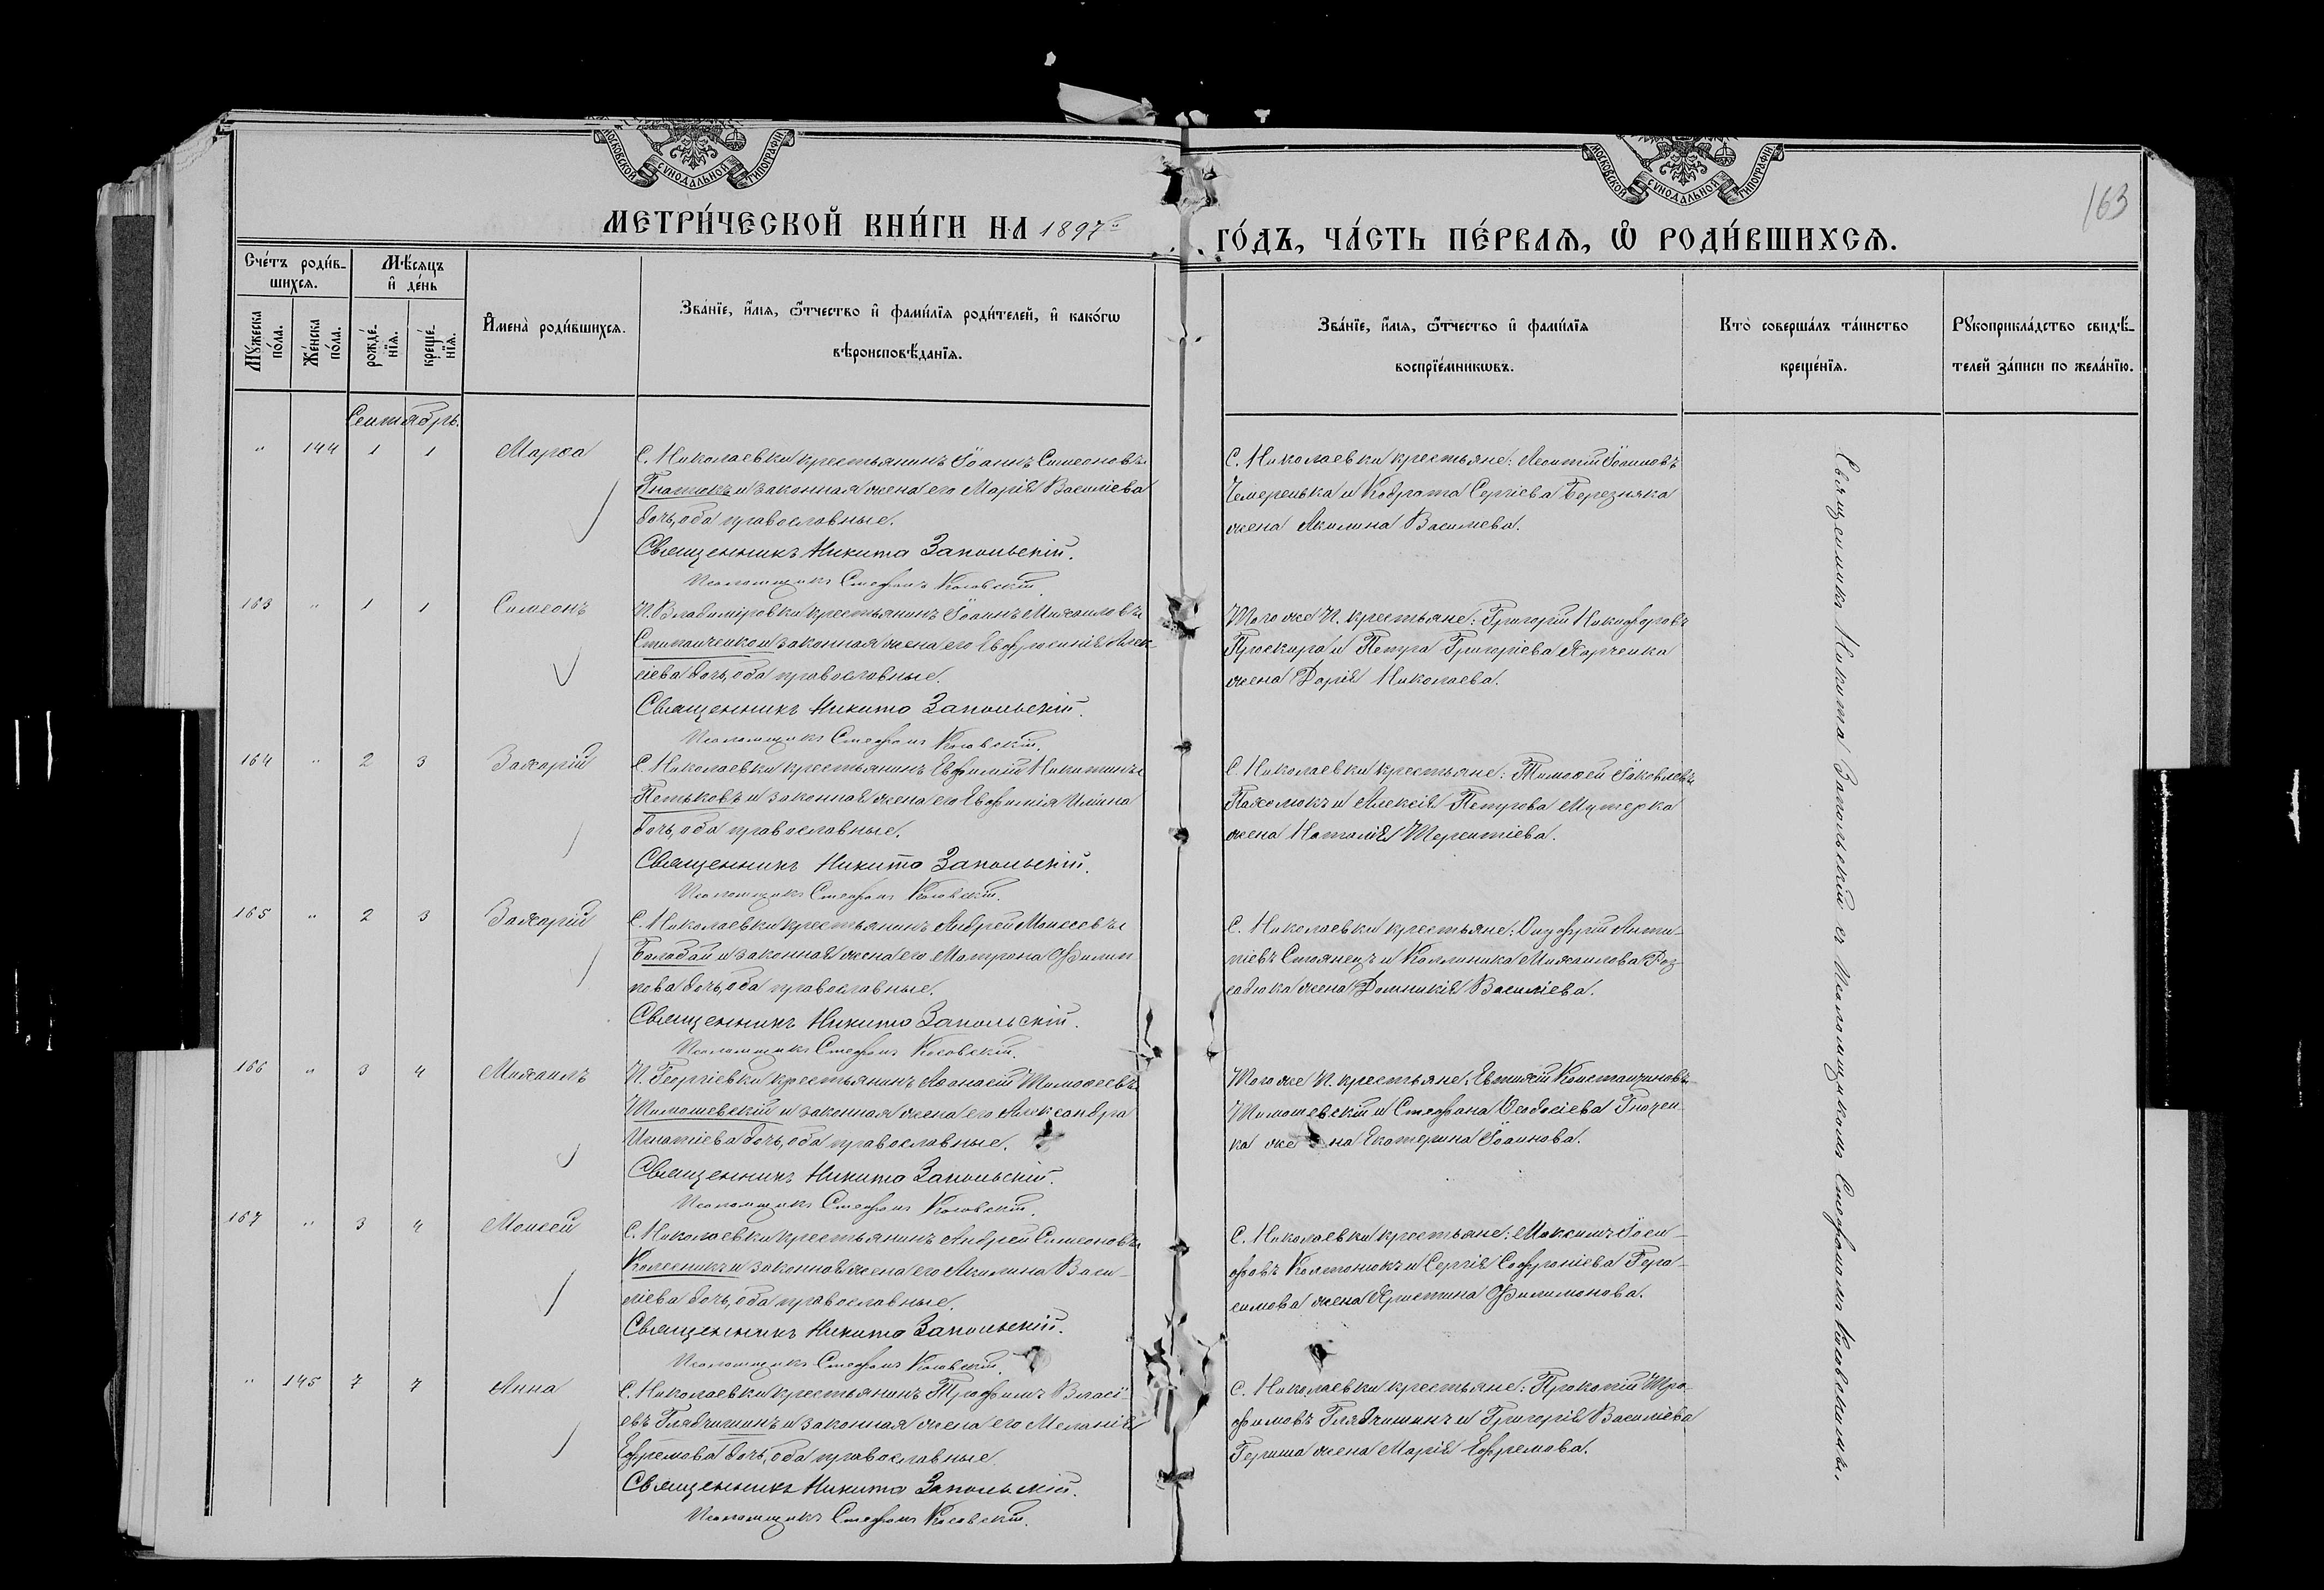 МОСКОВСКОЙ СУНОДАЛЬНОЙ ТИПОГРАФІИ
МОСКОВСКОЙ СУНОДАЛЬНОЙ ТИПОГРАФІИ
163
МЕТРИ́ЧЕСКОЙ КНИ́ГИ НА 1897 ГО́ДЪ, ЧА́СТЬ ПЕ́РВАЯ, Ѽ РОДИ́ВШИХСЯ.
Сче́тъ роди́в-
шихся.
Мѣ́сяцъ
и де́нь
Му́жеска по́ла.
Же́нска по́ла.
рожде́-
нїя.
креще́-
нїя.
Имена̀ роди́вшихся.
Зва́нїе, и́мя, ѻ́тчество и фами́лїя роди́телей, и како́гѡ
вѣроисповѣ́данїя.
Зва́нїе, и́мя, ѻ́тчество и фами́лїя
воспрїе́мникѡвъ.
Кто̀ соверша́лъ та́инство
креще́нїя.
Рꙋкоприкла́дство свидѣ́-
телей за́писи по жела́нїю.
Сентябрь.
" 144 1 1 Марѳа
С. Николаевки крестьянинъ Іоаннъ Симеоновъ
Гнатюкъ и законная жена его Марія Василіева
дочь, оба православные.
Священникъ Никита Запольскій.
Псаломщикъ Стефанъ Косовскій.
С. Николаевки крестьяне: Леонтій Іоанновъ
Чемеренька и Кодрата Сергіева Березняка
жена Акилина Василева.
163 " 1 1 Симеонъ
П. Владиміровки крестьянинъ Іоаннъ Михаиловъ
Степанченко и законная жена его Евфросинія Алек-
сіева дочь, оба православные.
Священникъ Никита Запольскій.
Псаломщикъ Стефанъ Косовскій.
Того же П. крестьяне: Григорій Никифоровъ
Проскура и Петра Григоріева Харченка
жена Дарія Николаева.
164 " 2 3 Захарій
С. Николаевки крестьянинъ Евфимій Никитинъ
Петьковъ и законная жена его Евфимія Иліина
дочь, оба православные.
Священникъ Никита Запольскій.
Псаломщикъ Стефанъ Косовскій.
С. Николаевки крестьяне: Тимоѳей Іаковлевъ
Пахолюкъ и Алексія Петрова Мутерка
жена Наталія Терентіева.
165 " 2 3 Захарій
С. Николаевки крестьянинъ Андрей Моисеевъ
Балабай и законная жена его Матрона Филип-
пова дочь, оба православные.
Священникъ Никита Запольскій.
Псаломщикъ Стефанъ Косовскій.
С. Николаевки крестьяне: Онуфрій Анти-
піевъ Стоянецъ и Каллиника Михаилова
жена Домникія Василіева.
166 " 3 4 Михаилъ
П. Георгіевки крестьянинъ Аѳанасій Тимоѳеевъ
Тимошевскій и законная жена его Александра
Игнатіева дочь, оба православные.
Священникъ Никита Запольскій.
Псаломщикъ Стефанъ Косовскій.
Того же П. крестьяне: Евтихій Константиновъ
Тимошевскій и Стефана Ѳеодосіева Гнатен-
ка жена Екатерина Іоаннова.
167 " 3 4 Моисей
С. Николаевки крестьянинъ Андрей Симеоновъ
Колесникъ и законная жена его Акилина Васи-
ліева дочь, оба православные.
Священникъ Никита Запольскій.
Псаломщикъ Стефанъ Косовскій.
С. Николаевки крестьяне: Максимъ Іоси-
фовъ Колтонюкъ и Сергія Софроніева Гера-
симова жена Христина Филимонова.
" 145 7 7 Анна
С. Николаевки крестьянинъ Трофимъ Власі-
евъ Глядчишинъ и законная жена его Меланія
Ефремова дочь, оба православные.
Священникъ Никита Запольскій.
Псаломщикъ Стефанъ Косовскій.
С. Николаевки крестьяне: Прокопій Тро-
фимовъ Глядчишинъ и Григорія Василіева
жена Марія Ефремова.
Священникъ Никита Запольскій съ Псаломщикомъ Стефаномъ Косовскимъ.